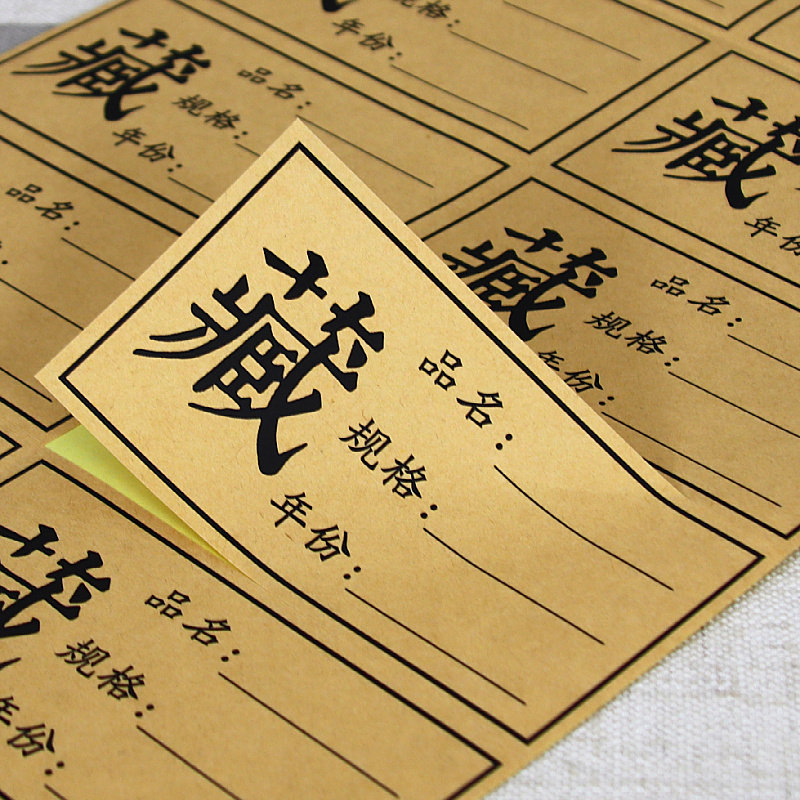 规格:
年份:
藏
品名:
规格:
年份:
藏
年份
品名:
藏
品名:
规格:
年份:
藏
品名:
规格:
年份:
藏
品名:
规格:
年份: